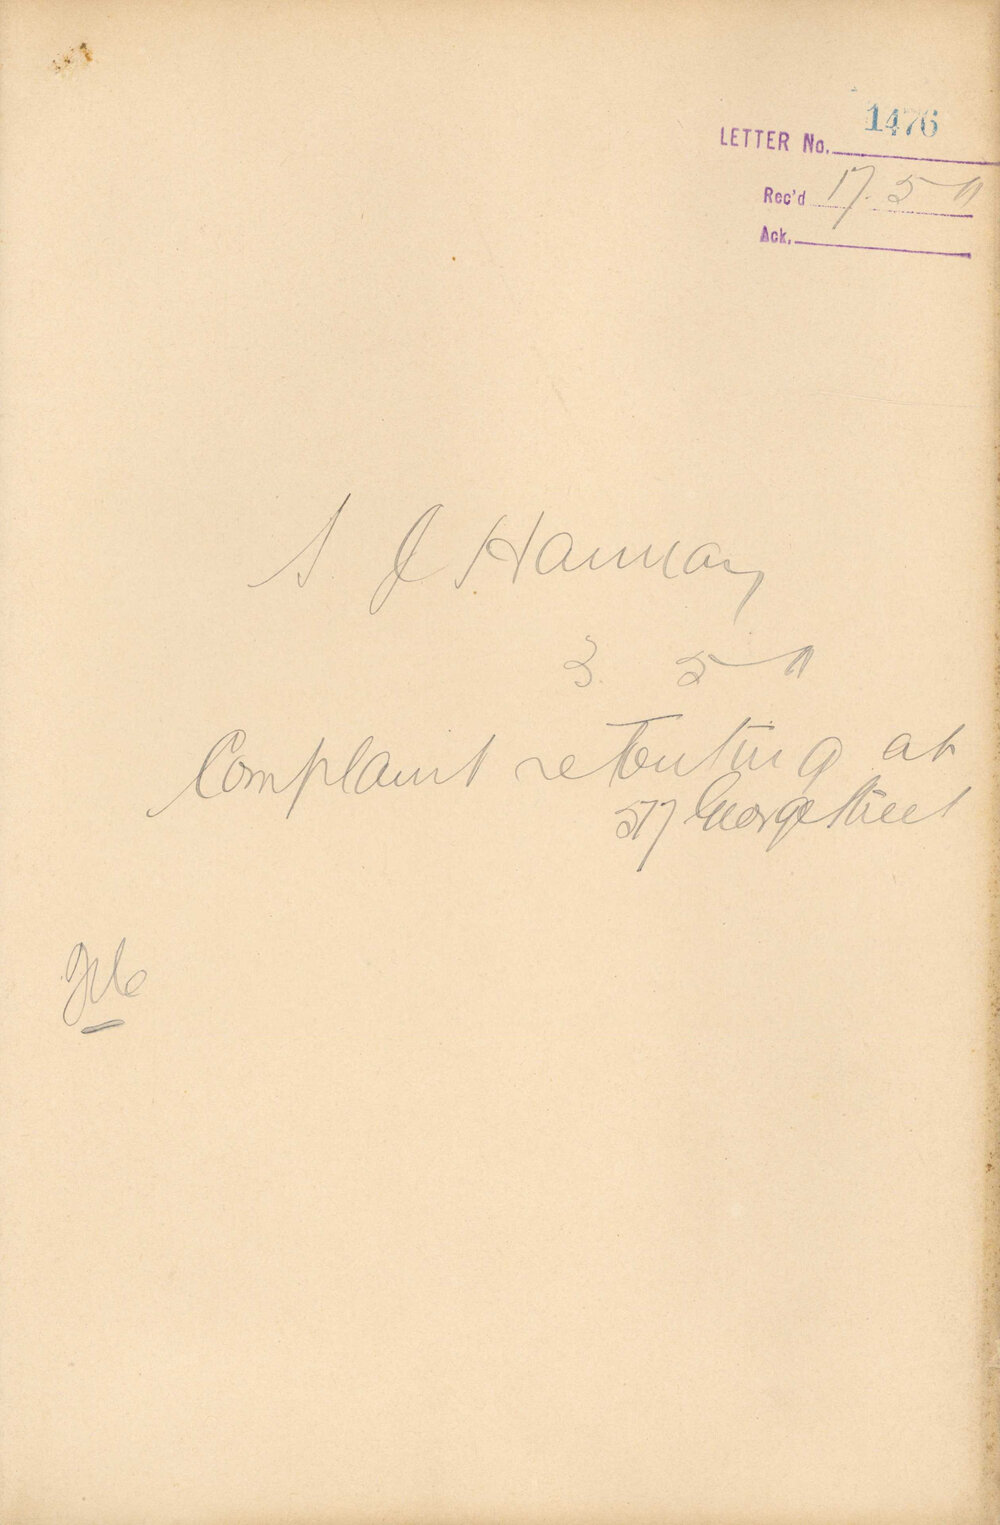 1476
LETTER No.
Rec'd 17. 5 11
Ack.
S J Hannay
3. 5 11
Complaint re touting at
517 George Street
File